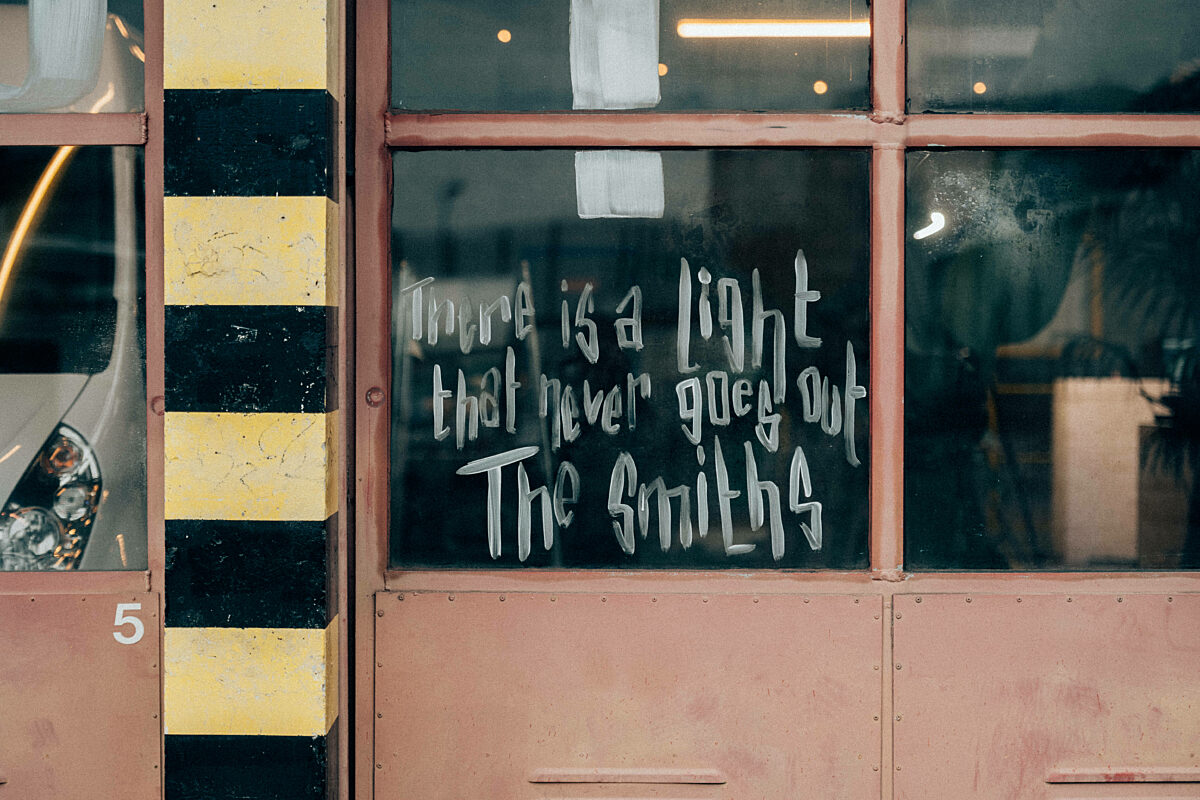 There is a light
that never goes out
The Smiths
5